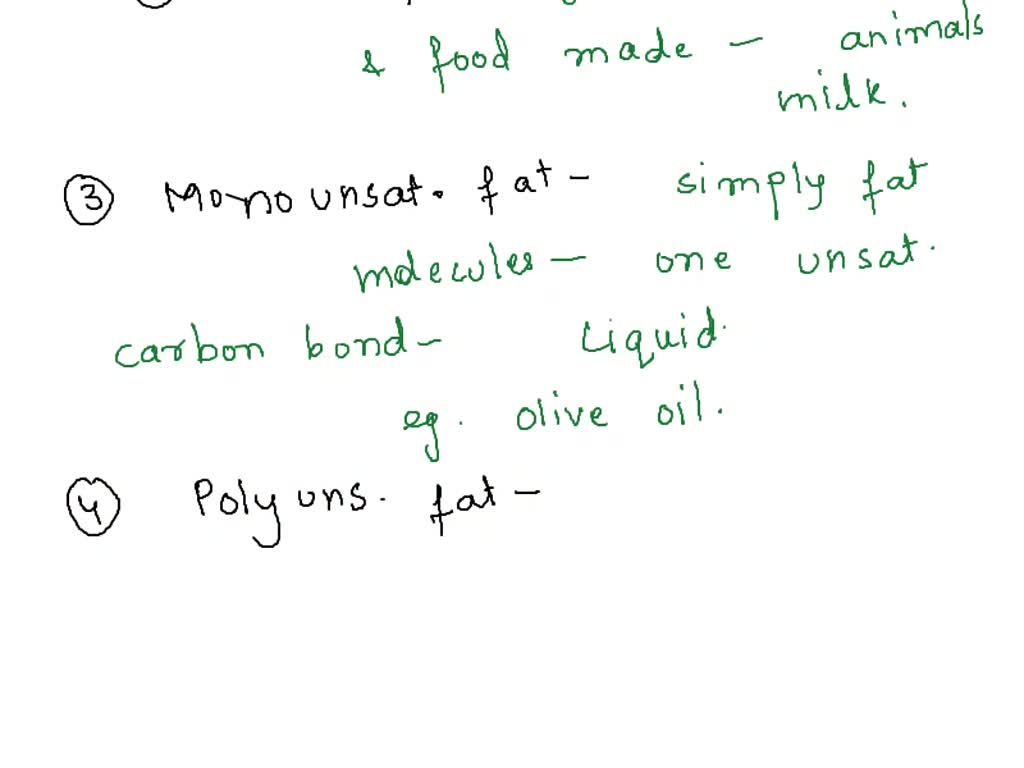 & food made - animals
milk.
③ Mono unsat. fat - simply fat
molecules - one unsat.
carbon bond - Liquid.
eg. olive oil.
④ Poly uns. fat -